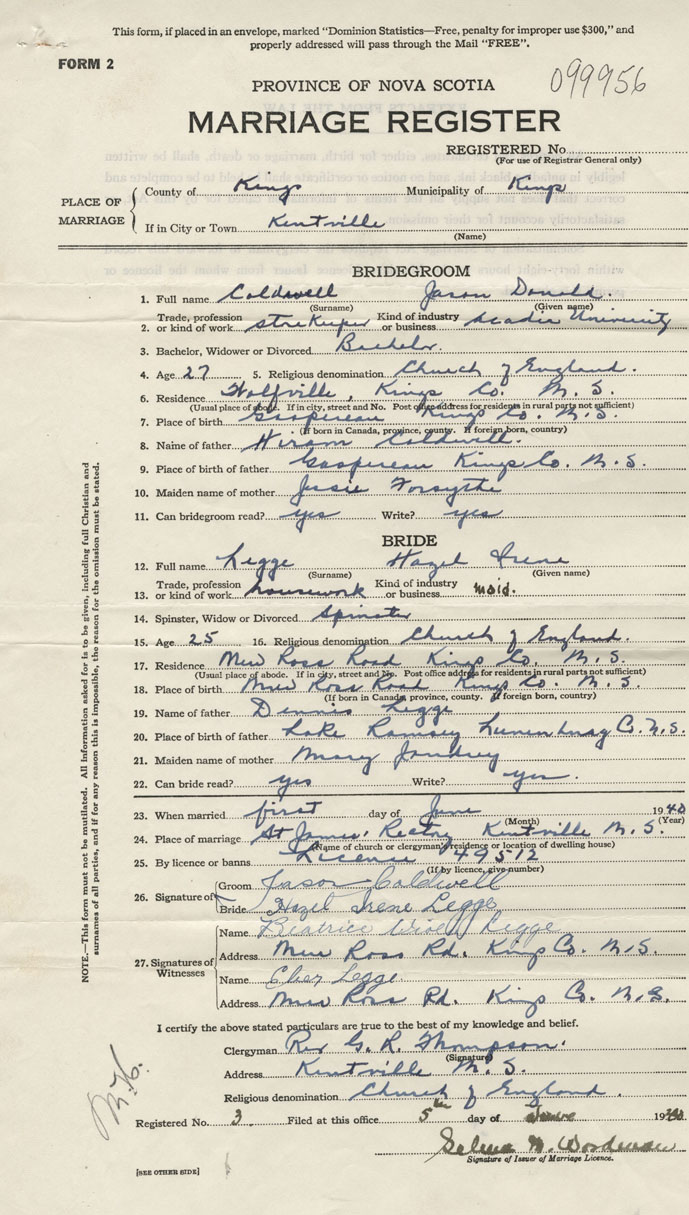 This form, if placed in an envelope, marked "Dominion Statistics—Free, penalty for improper use $300," and
properly addressed will pass through the Mail "FREE".
FORM 2
099956
PROVINCE OF NOVA SCOTIA
MARRIAGE REGISTER
REGISTERED No.
(For use of Registrar General only)
PLACE OF MARRIAGE
County of Kings Municipality of Kings
If in City or Town Kentville
(Name)
BRIDEGROOM
1. Full name Coldwell Jason Donald.
(Surname) (Given name)
2. Trade, profession or kind of work Kind of industry or business Acadia University
3. Bachelor, Widower or Divorced Bachelor.
4. Age 27 5. Religious denomination Church of England.
6. Residence Wolfville, Kings Co. N. S.
(Usual place of abode. If in city, street and No. Post office address for residents in rural parts not sufficient)
7. Place of birth Gaspereau Kings Co. N. S.
(If born in Canada, province, county. If foreign born, country)
8. Name of father Hiram Coldwell.
9. Place of birth of father Gaspereau Kings Co. N. S.
10. Maiden name of mother Jessie Forsythe
11. Can bridegroom read? yes Write? yes
BRIDE
12. Full name Legge Hazel Irene
(Surname) (Given name)
13. Trade, profession or kind of work housework Kind of industry or business maid.
14. Spinster, Widow or Divorced Spinster
15. Age 25 16. Religious denomination Church of England.
17. Residence New Ross Road Kings Co. N. S.
(Usual place of abode. If in city, street and No. Post office address for residents in rural parts not sufficient)
18. Place of birth New Ross Road Kings Co. N. S.
(If born in Canada, province, county. If foreign born, country)
19. Name of father Dennis Legge
20. Place of birth of father Lake Ramsey Lunenburg Co. N.S.
21. Maiden name of mother Mary
22. Can bride read? yes Write? yes.
23. When married first day of June 1940
(Month) (Year)
24. Place of marriage St James' Rectory Kentville N. S.
(Name of church or clergyman's residence or location of dwelling house)
25. By licence or banns License 49512
(If by licence, give number)
26. Signature of
Groom Jason Coldwell
Bride Hazel Irene Legge
27. Signatures of Witnesses
Name Beatrice Legge
Address New Ross Rd. Kings Co. N.S.
Name Eber Legge
Address New Ross Rd. Kings Co. N.S.
I certify the above stated particulars are true to the best of my knowledge and belief.
Clergyman Rev G. R. Thompson.
(Signature)
Address Kentville N. S.
Religious denomination Church of England.
Registered No. 3. Filed at this office 5th day of June 1940
Selena N. Woodman
Signature of Issuer of Marriage Licence.
[SEE OTHER SIDE]
NOTE.—This form must not be mutilated. All information asked for is to be given, including full Christian and
surnames of all parties, and if for any reason this is impossible, the reason for the omission must be stated.